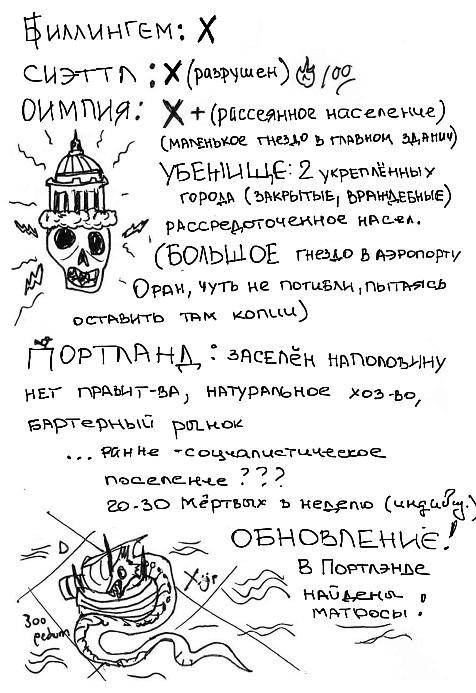 Биллингем: X
СИЭТТЛ: X (разрушен) 100
ОИМПИЯ: X + (рассеянное население)
(маленькое гнездо в главном здании)
УБЕНИЩЕ: 2 укреплённых
города (закрытые, враждебные)
рассредоточенное насел.
(БОЛЬШОЕ гнездо в аэропорту
Оран, чуть не погибли, пытаясь
оставить там копии)
ПОРТЛАНД: заселён наполовину
нет правит-ва, натуральное хоз-во,
бартерный рынок
... ранне-социалистическое
поселение???
20-30 мёртвых в неделю (индивид.)
ОБНОВЛЕНИЕ!
В Портлэнде
найдены
матросы!
D
300